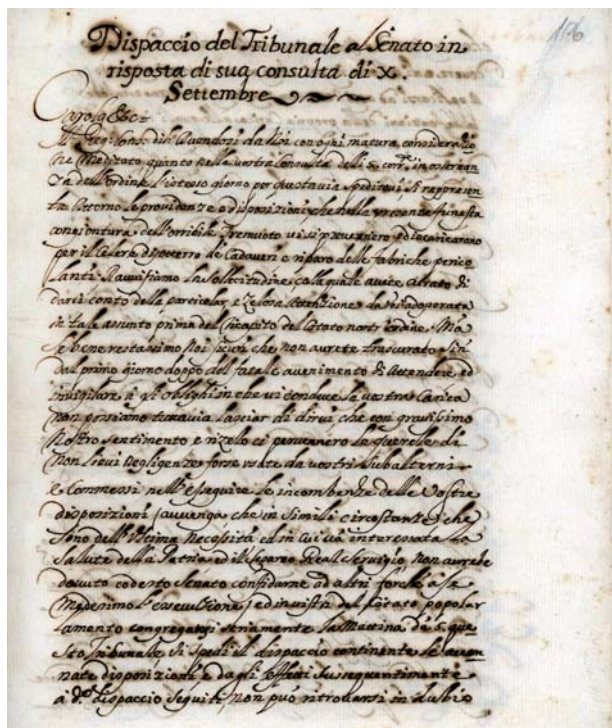 176
Dispaccio del Tribunale al Senato in
risposta di sua consulta di X.
Settembre
Carolus &c=
Avendosi da Noi con ogni matura consideratio
ne Meditato quanto nella vostra Consulta delli X. corr.e in osservan
za dell'ordine l'istesso giorno per questa via speditovi, si rappresen
ta attorno le providenze e disposizioni che nella presente funesta
congiontura dell'orribile Tremuoto vi si prevennero ed incaricarono
per il Celere disoterro de Cadaveri e riparo delle fabriche perico
lanti. Ravvisiamo la Sollecitudine colla quale avete curato di
darci conto della particolar e zelosa attenzione da voi adoperata
in tale assunto prima del Recapito del citato nostro ordine. Ma
se bene restassimo Noi sicuri che non avrete trascurato sin
dal primo giorno doppo del fatale avenimento di attendere ed
invigilare a gli oblighi in che vi conduce la vostra Carica
non possiamo tuttavia lasciar di dirvi che con gravissimo
Nostro sentimento e ci pervennero le querelle di
non lievi negligenze forse usate da vostri subalterni
e Commessi nell'eseguire le incombenze delle Vostre
disposizioni (avvenga che in simili circostanze che
sono dell'Ultima Necessità ed in cui và interessata la
salute della Patria ed il Real Servigio, non avrete
dovuto codesto Senato confidarne ad altri forchè à se
Medesimo l'esecuzione) ed in vista del citato popolar
lamento congregatosi seriamente la Mattina de X. que
sto Tribunale si spedì il dispaccio continente le accen
nate disposizioni e dagli effetti sussequentimente
a d.o dispaccio seguiti, non può ritrovarsi in dubio